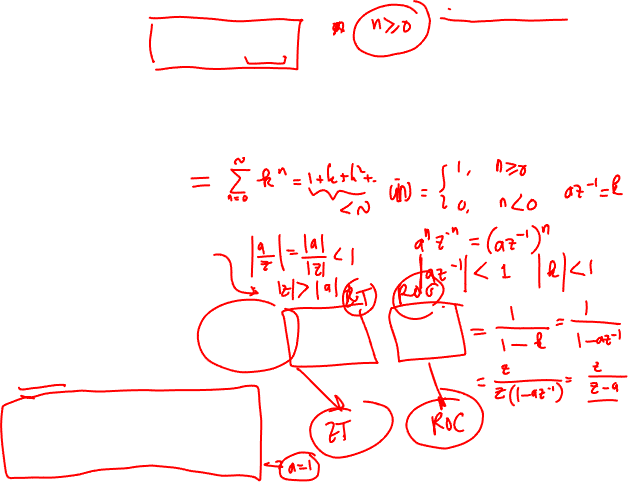 n≥0
= ∑_{n=0}^{∞} k^n = 1+k+k²+.. <∞
u(n) = { 1, n≥0
0, n<0
az⁻¹=k
|a/z| = |a|/|z| < 1
a^n z^{-n} = (az⁻¹)^n
|z|>|a|
|az⁻¹| < 1 |k|<1
ROC
= 1/(1-k) = 1/(1-az⁻¹)
= z/(z(1-az⁻¹)) = z/(z-a)
ZT
ROC
a=1